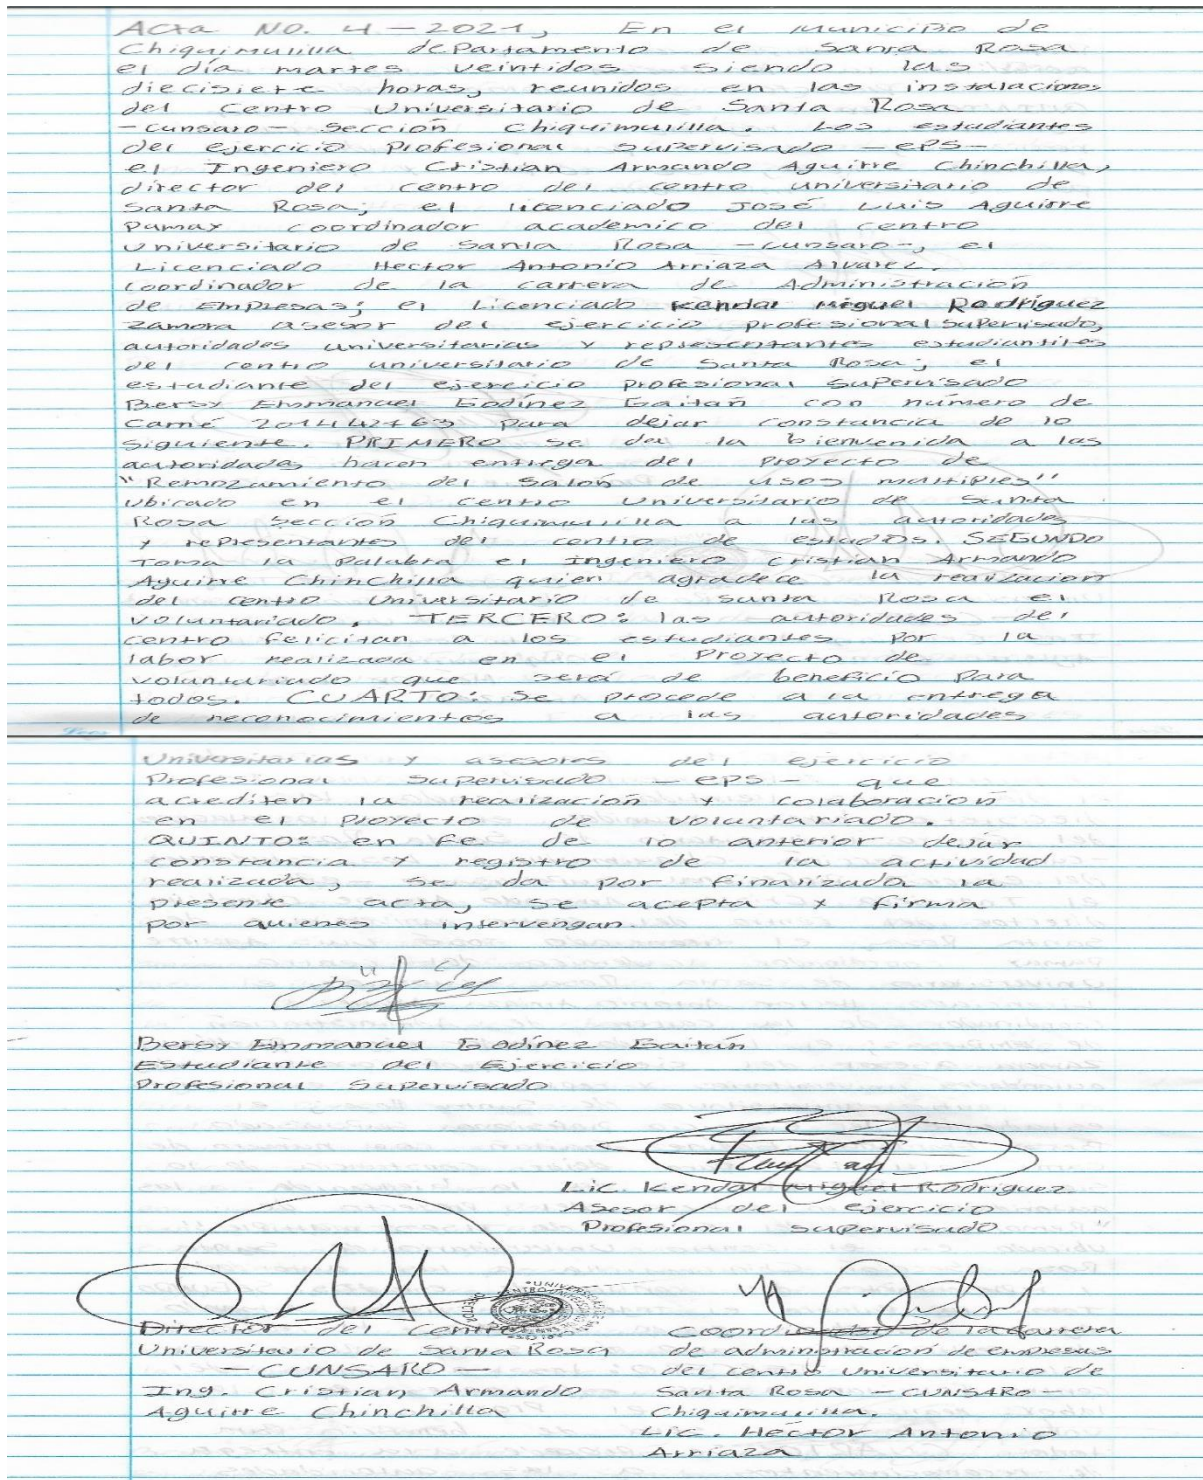 Acta No. 4-2021, En el municipio de
Chiquimulilla departamento de Santa Rosa
el día martes veintidos siendo las
diecisiete horas, reunidos en las instalaciones
del Centro Universitario de Santa Rosa
-cunsaro- Sección Chiquimulilla. Los estudiantes
del ejercicio Profesional Supervisado -eps-
el Ingeniero Cristian Armando Aguirre Chinchilla,
director del centro del centro universitario de
Santa Rosa; el licenciado José Luis Aguirre
Pumay coordinador academico del centro
Universitario de Santa Rosa -cunsaro-, el
Licenciado Hector Antonio Arriaza Alvarez.
coordinador de la carrera de Administración
de Empresas; el Licenciado Kendal Miguel Rodríguez
Zamora asesor del ejercicio profesional supervisado,
autoridades universitarias y representantes estudiantiles
del centro universitario de Santa Rosa; el
estudiante del ejercicio profesional Supervisado
Bersy Emmanuel Godínez Gaitán con número de
Carné para dejar constancia de lo
siguiente. PRIMERO se da la bienvenida a las
autoridades hacen entrega del Proyecto de
"Remozamiento del Salón de usos multiples"
Ubicado en el Centro Universitario de Santa
Rosa Sección Chiquimulilla a las autoridades
y representantes del centro de estudios. SEGUNDO
Toma la Palabra el Ingeniero Cristian Armando
Aguirre Chinchilla quien agradece la realización
del centro Universitario de Santa Rosa el
voluntariado. TERCERO: las autoridades del
centro felicitan a los estudiantes por la
labor realizada en el Proyecto de
voluntariado que será de beneficio Para
todos. CUARTO: Se procede a la entrega
de reconocimientos a las autoridades
Universitarias y asesores del ejercicio
Profesional Supervisado -eps- que
acrediten la realización y colaboración
en el Proyecto de Voluntariado.
QUINTO: en fe de lo anterior dejar
constancia y registro de la actividad
realizada, se da por finalizada la
presente acta, se acepta y firma
por quienes intervengan.
Bersy Emmanuel Godínez Gaitán
Estudiante del Ejercicio
Profesional Supervisado
Lic. Kendal Miguel Rodríguez
Asesor del ejercicio
Profesional supervisado
Director del Centro
Universitario de Santa Rosa
- CUNSARO -
Ing. Cristian Armando
Aguirre Chinchilla
Coordinador de la carrera
de administración de empresas
del centro Universitario de
Santa Rosa - CUNSARO -
Chiquimulilla.
Lic. Hector Antonio
Arriaza